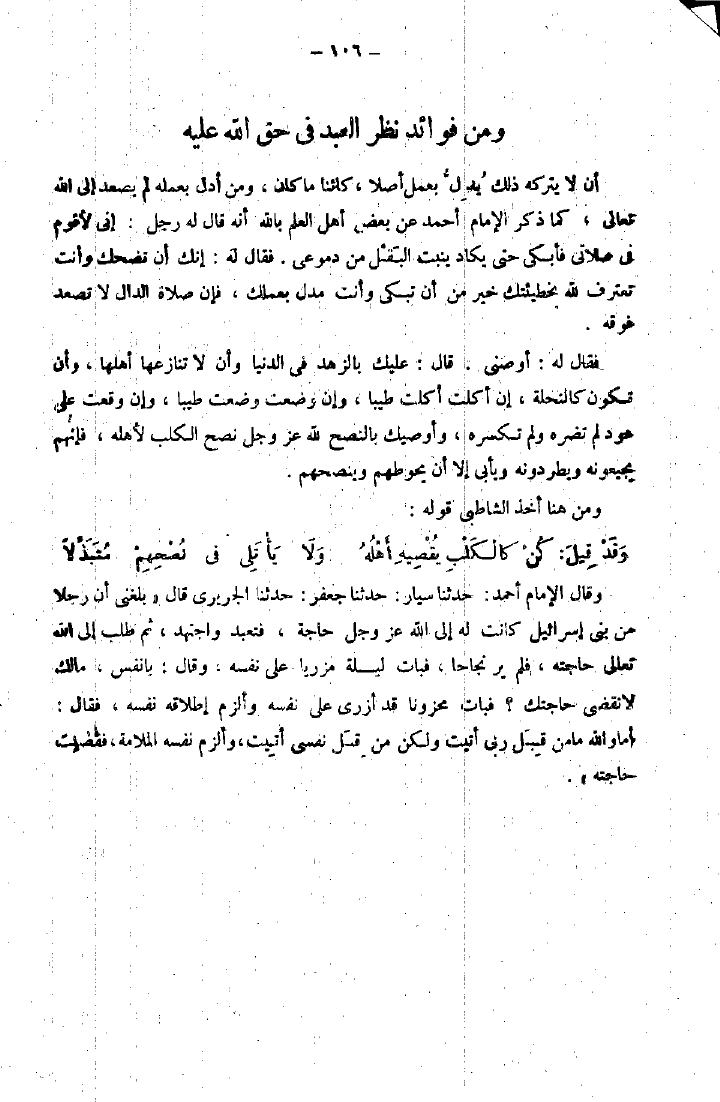 – ١٠٦ –
ومن فوائد نظر العبد فى حق الله عليه
أن لا يتركه ذلك يُدِلُّ بعمل أصلا ، كائنا ما كان ، ومن أدل بعمله لم يصعد إلى الله
تعالى ، كما ذكر الإمام أحمد عن بعض أهل العلم بالله أنه قال له رجل : إنى لأقوم
فى صلاتى فأبكى حتى يكاد ينبت البقل من دموعى . فقال له : إنك أن تضحك وأنت
تعترف لله بخطيئتك خير من أن تبكى وأنت مدل بعملك ، فإن صلاة الدال لا تصعد
فوقه .
فقال له : أوصنى . قال : عليك بالزهد فى الدنيا وأن لا تنازعها أهلها ، وأن
تكون كالنحلة ، إن أكلت أكلت طيبا ، وإن وضعت وضعت طيبا ، وإن وقعت على
عود لم تضره ولم تكسره ، وأوصيك بالنصح لله عز وجل نصح الكلب لأهله ، فإنهم
يجيعونه ويطردونه ويأبى إلا أن يحوطهم وينصحهم .
ومن هنا أخذ الشاطبى قوله :
وَقَدْ قِيلَ: كُنْ كَالْكَلْبِ يُقْصِيهِ أَهْلُهُ وَلَا يَأْتَلِى فى نُصْحِهِمْ مُتَبَذِّلاً
وقال الإمام أحمد : حدثنا سيار : حدثنا جعفر : حدثنا الجريرى قال وبلغنى أن رجلا
من بنى إسرائيل كانت له إلى الله عز وجل حاجة ، فتعبد واجتهد ، ثم طلب إلى الله
تعالى حاجته ، فلم ير نجاحا ، فبات ليلة مزريا على نفسه ، وقال : يانفس ، مالك
لاتقضى حاجتك ؟ فبات محزونا قد أزرى على نفسه وألزم إطلاقه نفسه ، فقال :
أما والله مامن قِبَل ربى أتيت ولكن من قِبَل نفسى أتيت ، وألزم نفسه الملامة ، فقُضيت
حاجته ، .